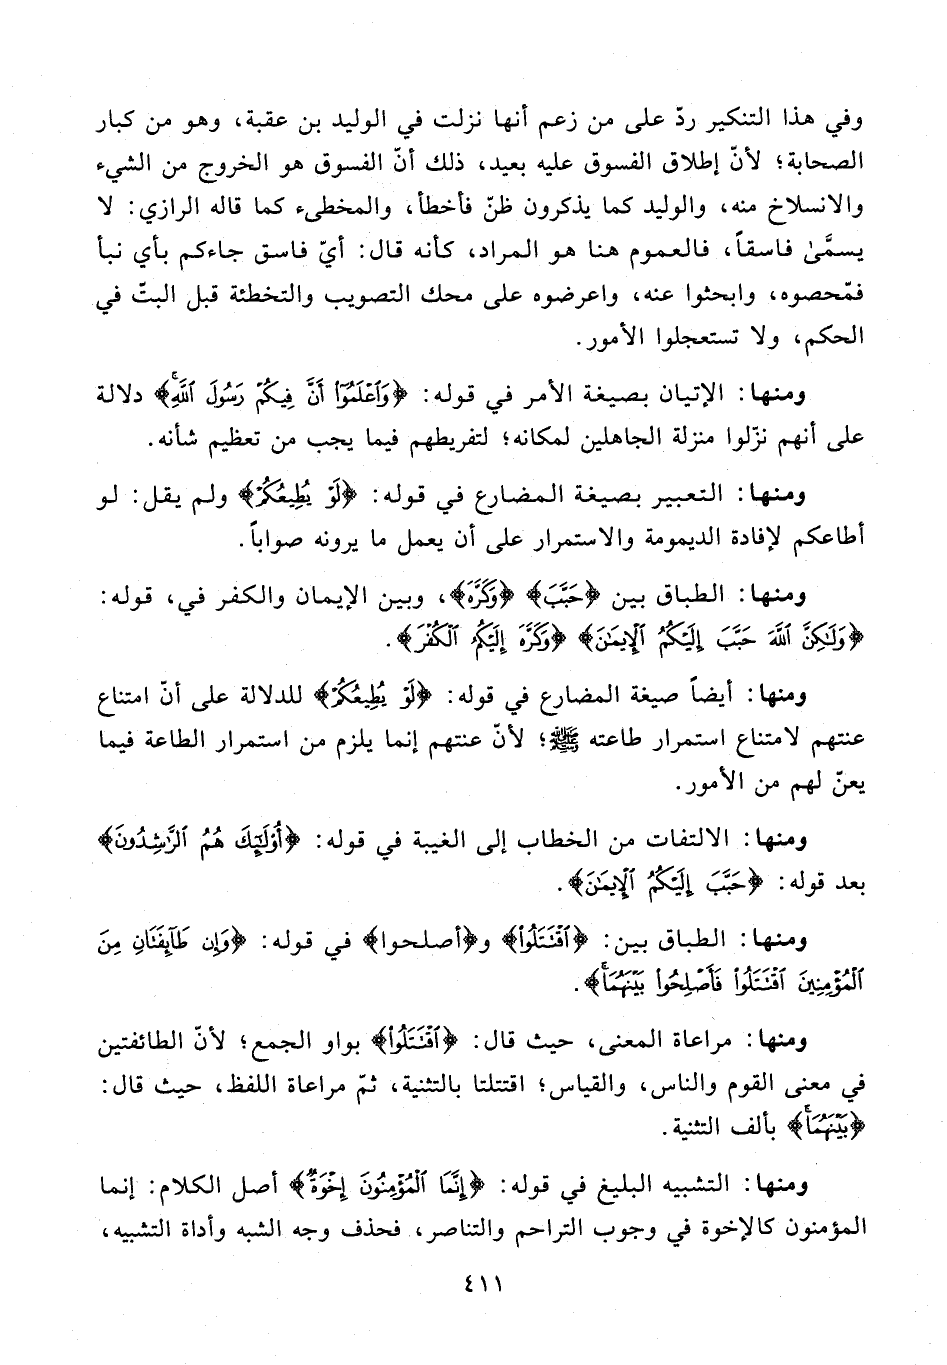 وفي هذا التنكير ردّ على من زعم أنها نزلت في الوليد بن عقبة، وهو من كبار
الصحابة؛ لأنّ إطلاق الفسوق عليه بعيد، ذلك أنّ الفسوق هو الخروج من الشيء
والانسلاخ منه، والوليد كما يذكرون ظنّ فأخطأ، والمخطىء كما قاله الرازي: لا
يسمَّىٰ فاسقاً، فالعموم هنا هو المراد، كأنه قال: أيّ فاسق جاءكم بأي نبأ
فمّحصوه، وابحثوا عنه، واعرضوه على محك التصويب والتخطئة قبل البتّ في
الحكم، ولا تستعجلوا الأمور.
ومنها: الإتيان بصيغة الأمر في قوله: ﴿وَٱعْلَمُوٓا۟ أَنَّ فِيكُمْ رَسُولَ ٱللَّهِۚ﴾ دلالة
على أنهم نزّلوا منزلة الجاهلين لمكانه؛ لتفريطهم فيما يجب من تعظيم شأنه.
ومنها: التعبير بصيغة المضارع في قوله: ﴿لَوْ يُطِيعُكُمْ﴾ ولم يقل: لو
أطاعكم لإفادة الديمومة والاستمرار على أن يعمل ما يرونه صواباً.
ومنها: الطباق بين ﴿حَبَّبَ﴾ ﴿وَكَرَّهَ﴾، وبين الإيمان والكفر في، قوله:
﴿وَلَٰكِنَّ ٱللَّهَ حَبَّبَ إِلَيْكُمُ ٱلْإِيمَٰنَ﴾ ﴿وَكَرَّهَ إِلَيْكُمُ ٱلْكُفْرَ﴾.
ومنها: أيضاً صيغة المضارع في قوله: ﴿لَوْ يُطِيعُكُمْ﴾ للدلالة على أنّ امتناع
عنتهم لامتناع استمرار طاعته ﷺ؛ لأنّ عنتهم إنما يلزم من استمرار الطاعة فيما
يعنّ لهم من الأمور.
ومنها: الالتفات من الخطاب إلى الغيبة في قوله: ﴿أُو۟لَٰٓئِكَ هُمُ ٱلرَّٰشِدُونَ﴾
بعد قوله: ﴿حَبَّبَ إِلَيْكُمُ ٱلْإِيمَٰنَ﴾.
ومنها: الطباق بين: ﴿ٱقْتَتَلُوا۟﴾ و﴿أصلحوا﴾ في قوله: ﴿وَإِن طَآئِفَتَانِ مِنَ
ٱلْمُؤْمِنِينَ ٱقْتَتَلُوا۟ فَأَصْلِحُوا۟ بَيْنَهُمَاۚ﴾.
ومنها: مراعاة المعنى، حيث قال: ﴿ٱقْتَتَلُوا۟﴾ بواو الجمع؛ لأنّ الطائفتين
في معنى القوم والناس، والقياس؛ اقتتلتا بالتثنية، ثمّ مراعاة اللفظ، حيث قال:
﴿بَيْنَهُمَاۚ﴾ بألف التثنية.
ومنها: التشبيه البليغ في قوله: ﴿إِنَّمَا ٱلْمُؤْمِنُونَ إِخْوَةٌ﴾ أصل الكلام: إنما
المؤمنون كالإخوة في وجوب التراحم والتناصر، فحذف وجه الشبه وأداة التشبيه،
٤١١